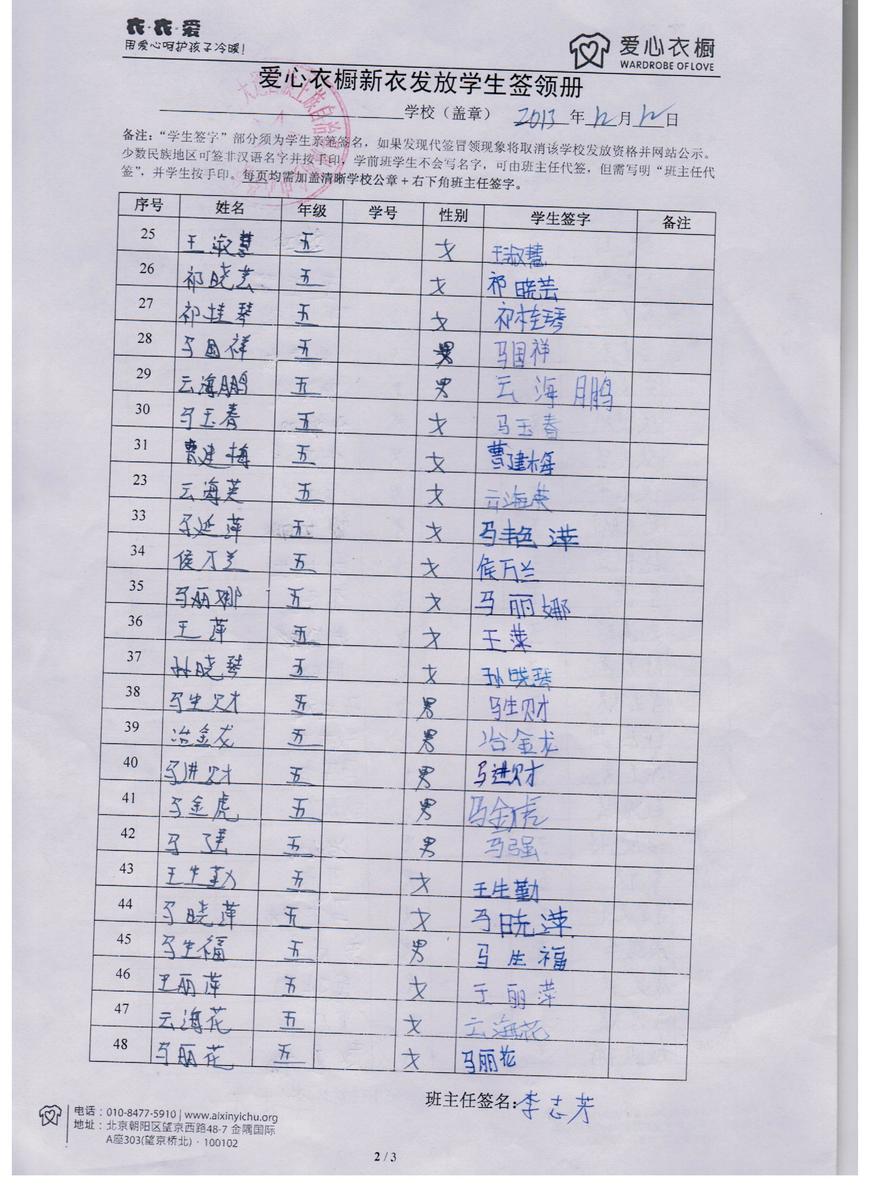 衣·衣·爱
用爱心呵护孩子冷暖!
爱心衣橱
WARDROBE OF LOVE
爱心衣橱新衣发放学生签领册
学校（盖章） 2013年12月12日
备注："学生签字"部分须为学生亲笔签名，如果发现代签冒领现象将取消该学校发放资格并网站公示。
少数民族地区可签非汉语名字并按手印。学前班学生不会写名字，可由班主任代签，但需写明"班主任代
签"，并学生按手印。每页均需加盖清晰学校公章+右下角班主任签字。
序号 姓名 年级 学号 性别 学生签字 备注
25 王淑慧 五 女 王淑慧
26 祁晓芸 五 女 祁晓芸
27 祁桂琴 五 女 祁桂琴
28 马国祥 五 男 马国祥
29 云海鹏 五 男 云海鹏
30 马玉春 五 女 马玉春
31 曹建梅 五 女 曹建梅
23 云海英 五 女 云海英
33 马延萍 五 女 马艳萍
34 侯万兰 五 女 侯万兰
35 马丽娜 五 女 马丽娜
36 王萍 五 女 王萍
37 孙晓琴 五 女 孙晓琴
38 马生财 五 男 马生财
39 冶金龙 五 男 冶金龙
40 马进财 五 男 马进财
41 马金虎 五 男 马金虎
42 马强 五 男 马强
43 王生勤 五 女 王生勤
44 马晓萍 五 女 马晓萍
45 马生福 五 男 马生福
46 王丽萍 五 女 王丽萍
47 云海花 五 女 云海花
48 马丽花 五 女 马丽花
班主任签名:李志芳
电话：010-8477-5910 | www.aixinyichu.org
地址：北京朝阳区望京西路48-7 金隅国际
A座303(望京桥北)·100102
2 / 3